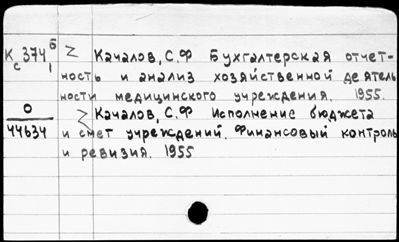 К 374 б
с 1
Z Качалов, С.Ф Бухгалтерская отчет-
ность и анализ хозяйственной деятель
ности медицинского учреждения. 1955.
О
44634
Z Качалов, С.Ф Исполнение бюджета
и смет учреждений. Финансовый контроль
и ревизия. 1955